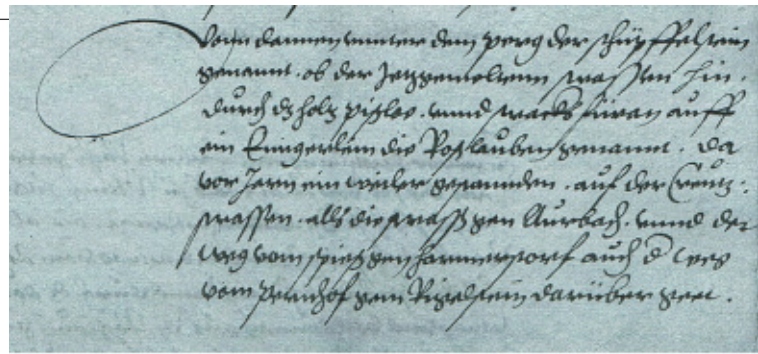 Vonn dannen unnter dem perg der schüpffelstein
genannt. ob der Jetzgemeltenn strassen hin.
durch dz holz pißloe. unnd stracks füran auff
ein Enngerlein die Roßlauben genannt. da
vor Jarn ein weiler gestannden. auf der Creutz:
strassen. als die strass gen Aurbach. unnd der
weg vom spieß gen harmerstorf auch d weg
vom pernhof zem Rigelstein darüber geet.